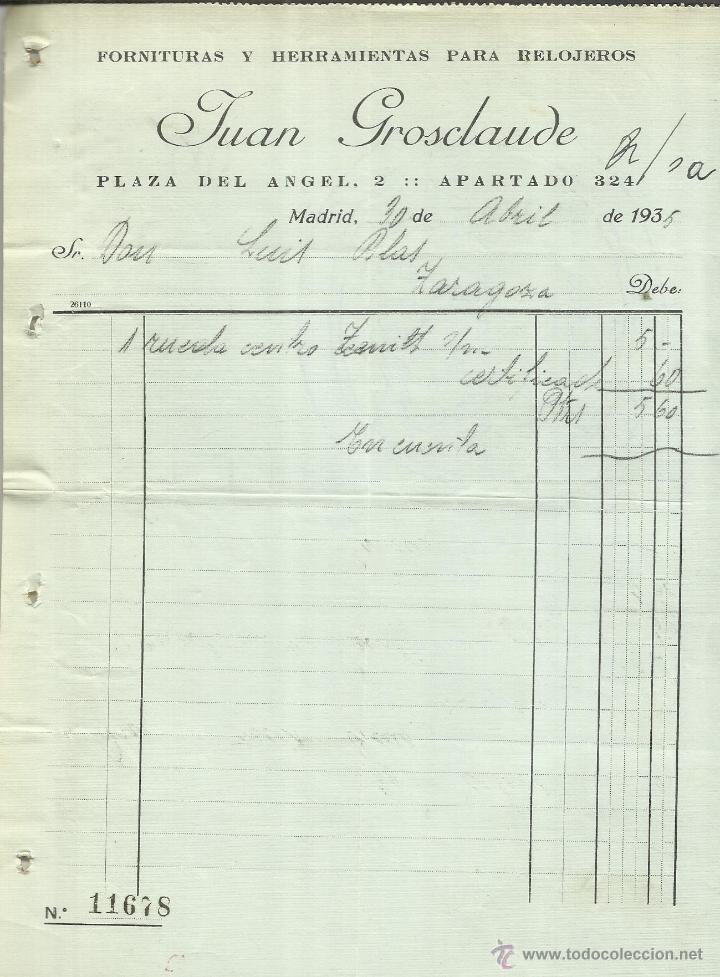 FORNITURAS Y HERRAMIENTAS PARA RELOJEROS
Juan Grosclaude
PLAZA DEL ANGEL, 2 :: APARTADO 324
Madrid, 30 de Abril de 1935
Sr. Don Luis Blas
Zaragoza Debe:
26110
1 rueda centro Zenith 5 -
certificado 60
Pts 5 60
En cuenta
N.° 11678
www.todocoleccion.net